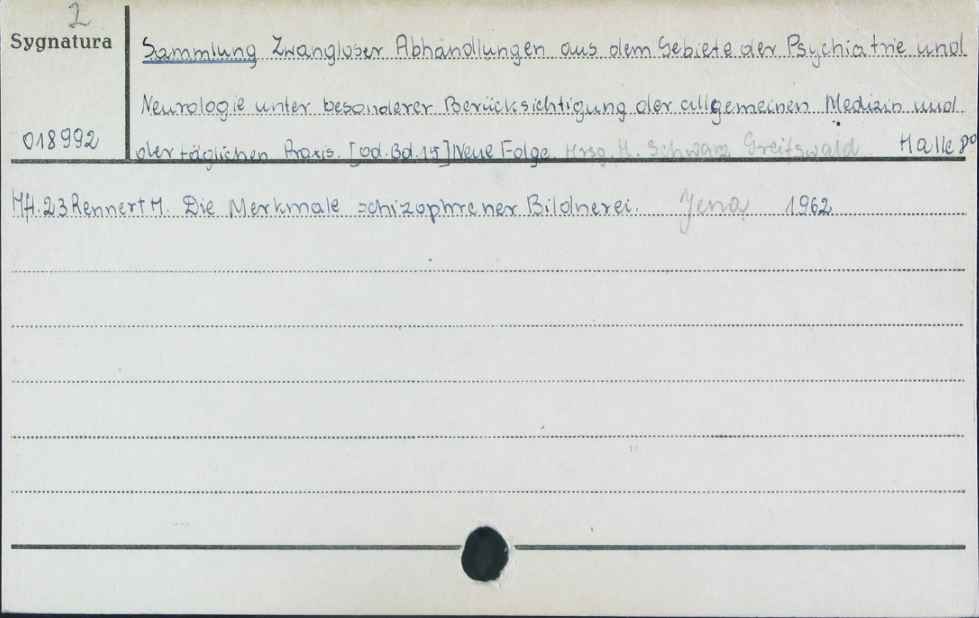 2
Sygnatura
Sammlung Zwangloser Abhandlungen aus dem Gebiete der Psychiatrie und
Neurologie unter besonderer Berücksichtigung der allgemeinen Medizin und
018992
der täglichen Praxis. [od. Bd. 15] Neue Folge. Hrsg. H. Schwarz Greifswald Halle
Hft. 23 Rennert H. Die Merkmale schizophrener Bildnerei. Jena 1962